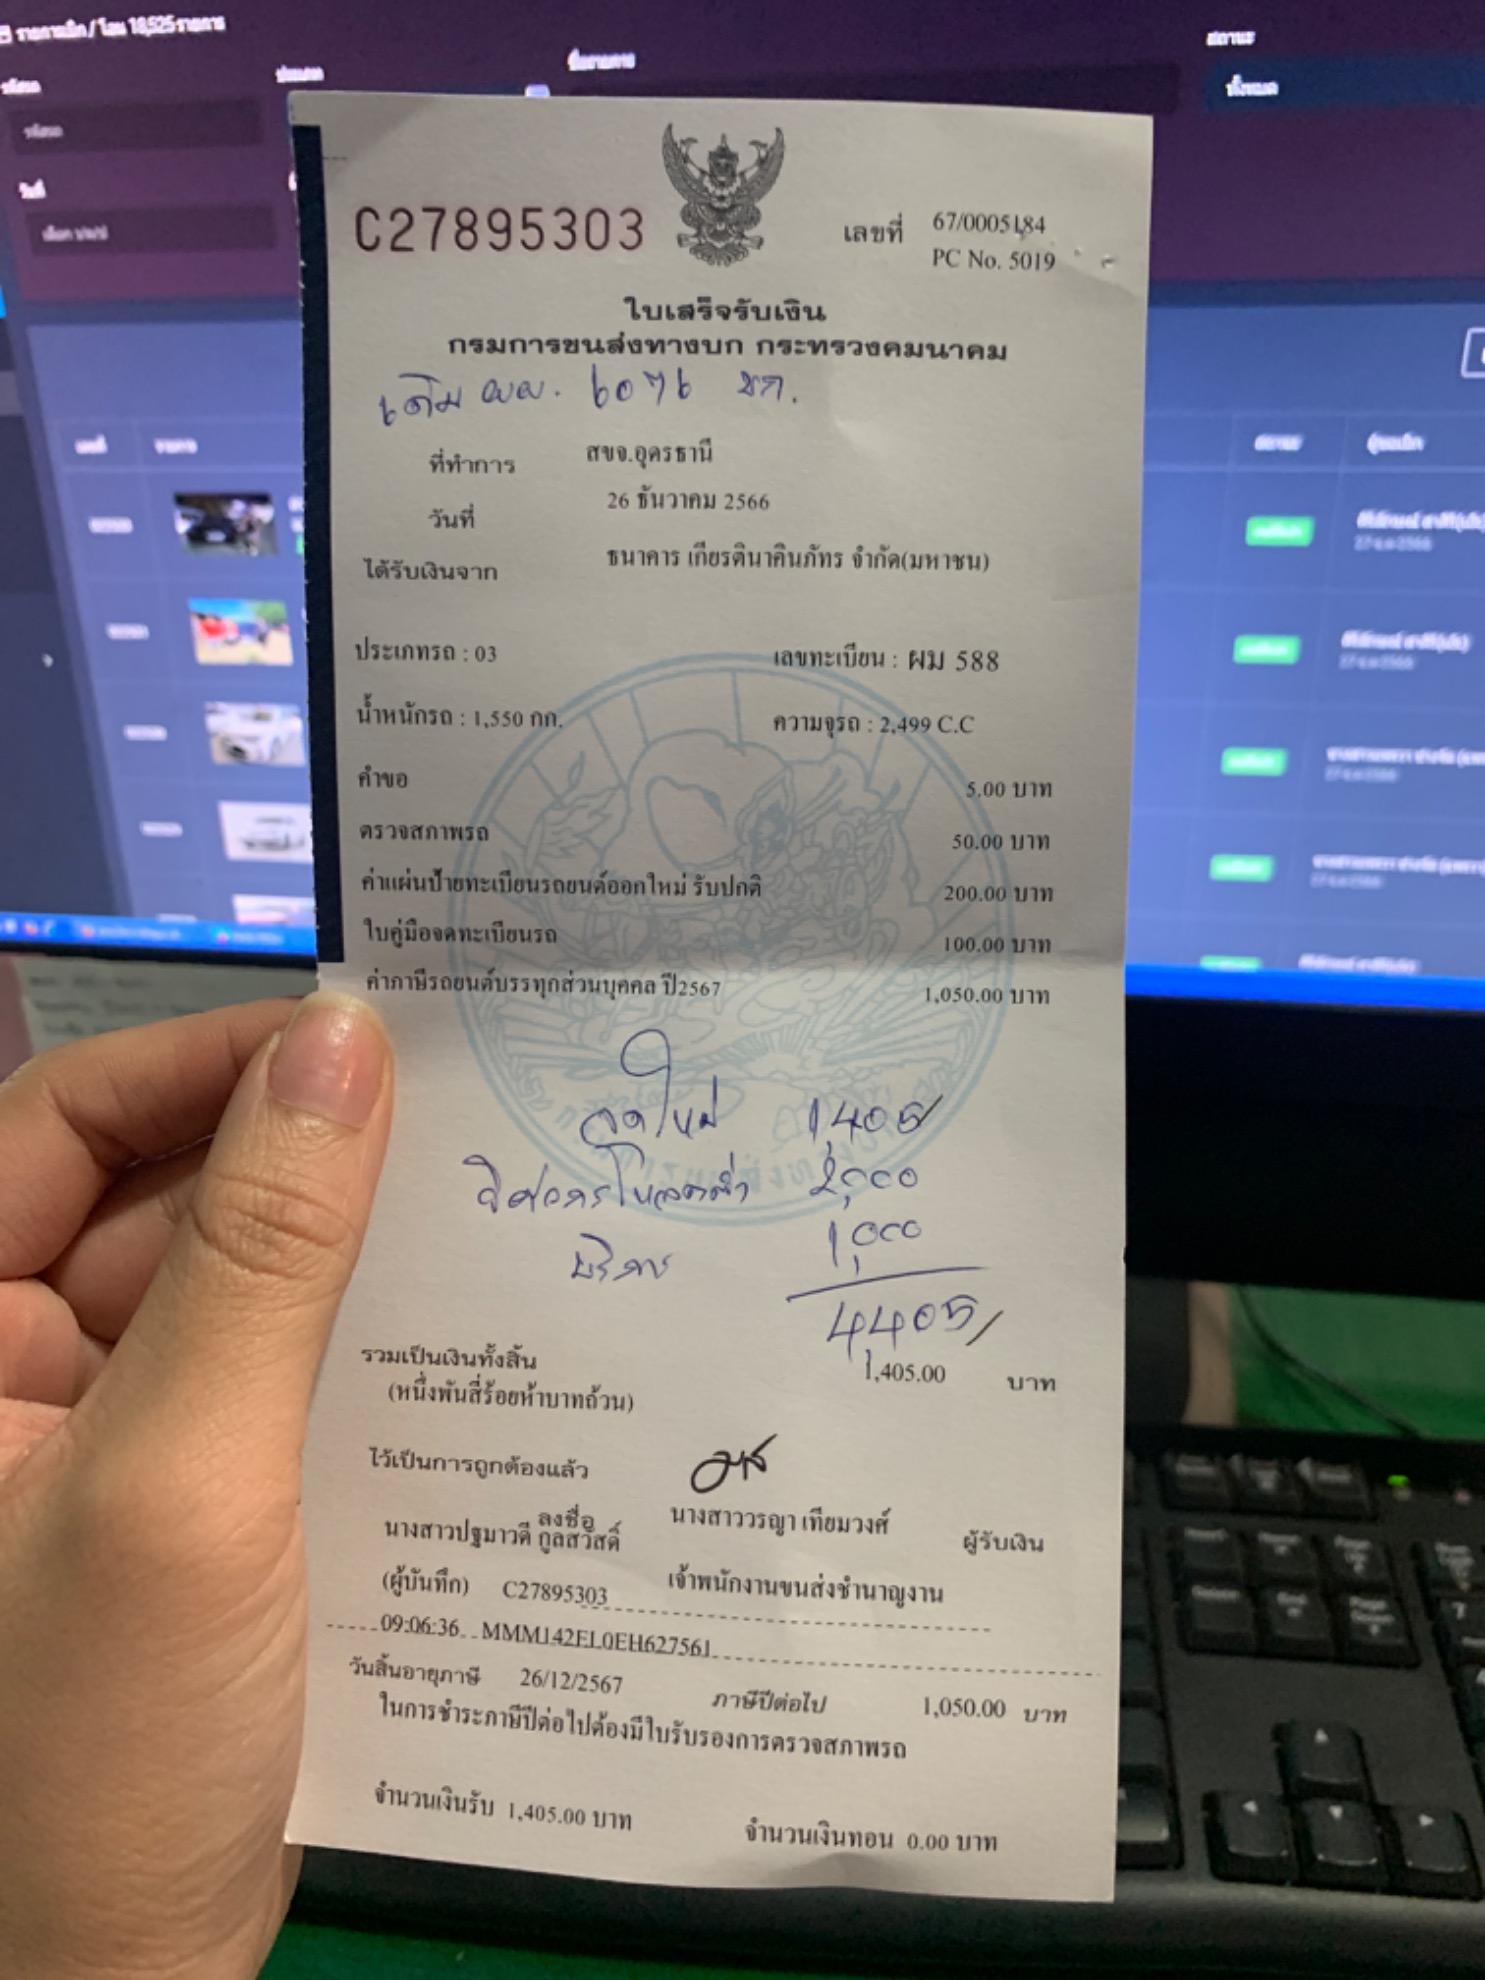 รายการเบิก / โอน 18,525 รายการ
รหัสรถ
ประเภท
ชื่อรายการ
สถานะ
รหัสรถ
ทั้งหมด
วันที่
C27895303
เลขที่ 67/0005184
PC No. 5019
ใบเสร็จรับเงิน
กรมการขนส่งทางบก กระทรวงคมนาคม
เดิม ผผ. 6076 ขก.
ที่ทำการ สขจ.อุดรธานี
วันที่ 26 ธันวาคม 2566
ได้รับเงินจาก ธนาคาร เกียรตินาคินภัทร จำกัด(มหาชน)
ประเภทรถ : 03 เลขทะเบียน : ผม 588
น้ำหนักรถ : 1,550 กก. ความจุรถ : 2,499 C.C
คำขอ 5.00 บาท
ตรวจสภาพรถ 50.00 บาท
ค่าแผ่นป้ายทะเบียนรถยนต์ออกใหม่ รับปกติ 200.00 บาท
ใบคู่มือจดทะเบียนรถ 100.00 บาท
ค่าภาษีรถยนต์บรรทุกส่วนบุคคล ปี2567 1,050.00 บาท
จดใหม่ 1,405/
วิศวกรโหลดต่ำ 2,000
บริการ 1,000
4,405/
รวมเป็นเงินทั้งสิ้น 1,405.00 บาท
(หนึ่งพันสี่ร้อยห้าบาทถ้วน)
ไว้เป็นการถูกต้องแล้ว
ลงชื่อ นางสาววรญา เทียมวงศ์ ผู้รับเงิน
นางสาวปฐมาวดี กูลสวัสดิ์
(ผู้บันทึก) C27895303 เจ้าพนักงานขนส่งชำนาญงาน
09:06:36 MMM142EL0EH627561
วันสิ้นอายุภาษี 26/12/2567 ภาษีปีต่อไป 1,050.00 บาท
ในการชำระภาษีปีต่อไปต้องมีใบรับรองการตรวจสภาพรถ
จำนวนเงินรับ 1,405.00 บาท จำนวนเงินทอน 0.00 บาท